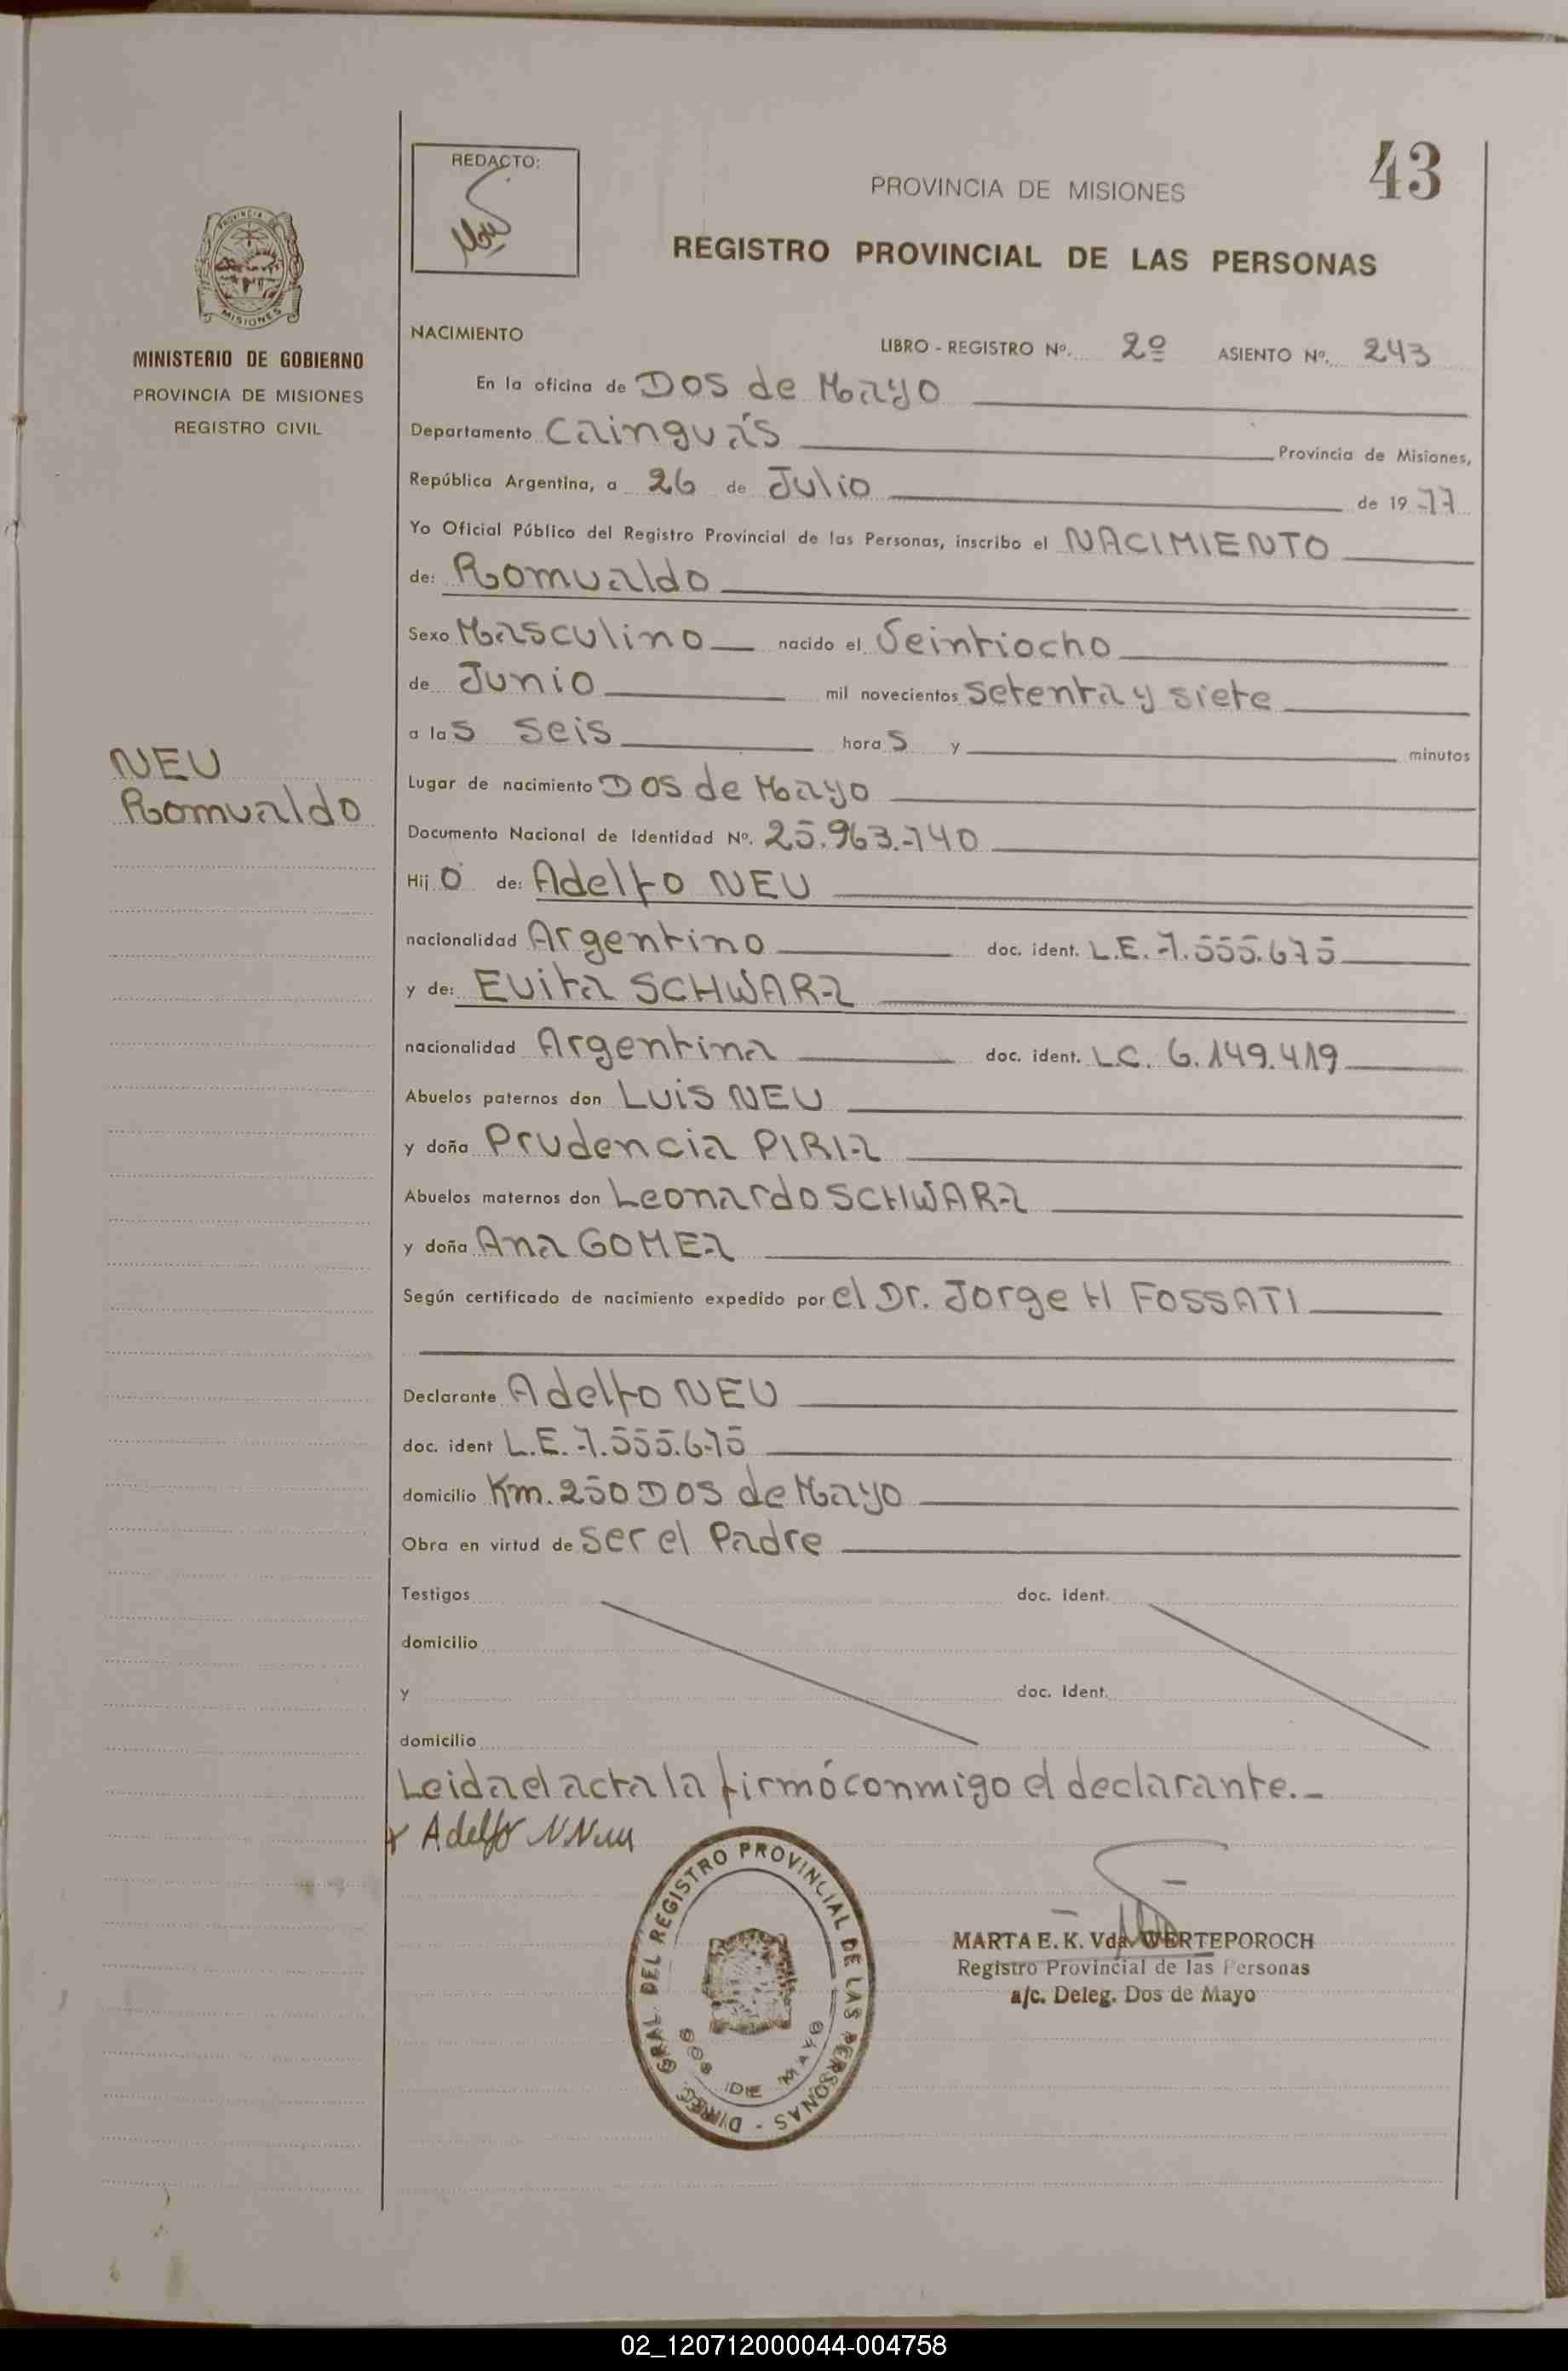 43
REDACTO:
PROVINCIA DE MISIONES
REGISTRO PROVINCIAL DE LAS PERSONAS
PROVINCIA DE
MISIONES
MINISTERIO DE GOBIERNO
PROVINCIA DE MISIONES
REGISTRO CIVIL
NACIMIENTO
LIBRO - REGISTRO Nº. 2º ASIENTO Nº. 243
En la oficina de Dos de Mayo
Departamento Cainguás Provincia de Misiones,
República Argentina, a 26 de Julio de 19 77
Yo Oficial Público del Registro Provincial de las Personas, inscribo el NACIMIENTO
de: Romualdo
Sexo Masculino nacido el Veintiocho
de Junio mil novecientos setenta y siete
a las seis horas y minutos
NEU
Romualdo
Lugar de nacimiento Dos de Mayo
Documento Nacional de Identidad Nº. 25.963.740
Hijo de: Adelfo NEU
nacionalidad Argentino doc. ident. L.E. 7.555.675
y de: Evita SCHWARZ
nacionalidad Argentina doc. ident. L.C. 6.149.419
Abuelos paternos don Luis NEU
y doña Prudencia PIRIZ
Abuelos maternos don Leonardo SCHWARZ
y doña Ana GOMEZ
Según certificado de nacimiento expedido por el Dr. Jorge H FOSSATI
Declarante Adelfo NEU
doc. ident L.E. 7.555.675
domicilio Km. 250 Dos de Mayo
Obra en virtud de ser el Padre
Testigos doc. ident.
domicilio
y doc. ident.
domicilio
Leida el acta la firmó conmigo el declarante.-
Adelfo N Neu
DIREC. GRAL. DEL REGISTRO PROVINCIAL DE LAS PERSONAS -
DOS DE MAYO
MARTA E. K. Vda WERTEPOROCH
Registro Provincial de las Personas
a/c. Deleg. Dos de Mayo
02_120712000044-004758